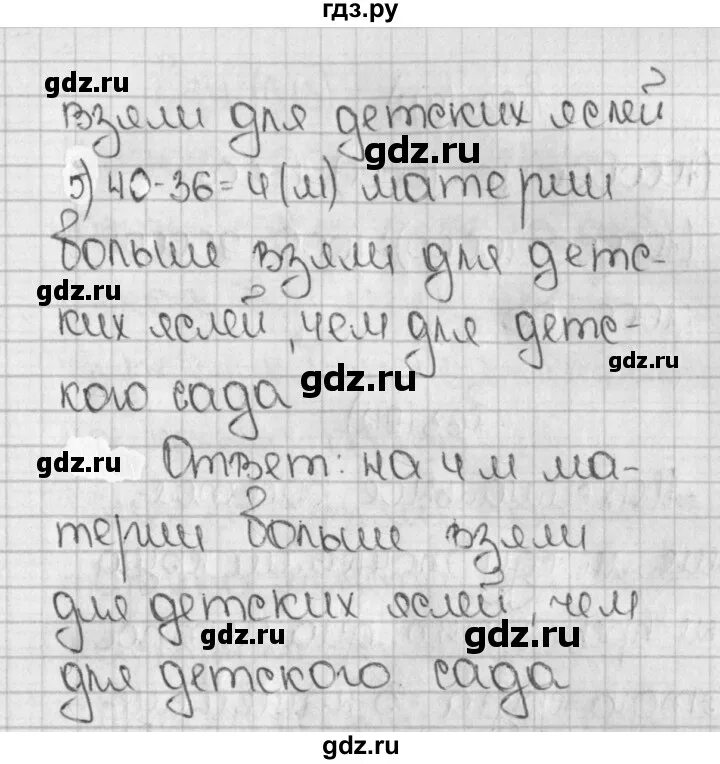 гдз.ру
gdz.ru
взяли для детских яслей
gdz.ru
5) 40-36=4(м) материи
больше взяли для детс-
gdz.ru
ких яслей, чем для детс-
gdz.ru
gdz.ru
кого сада
gdz.ru
Ответ: на 4 м ма-
терии больше взяли
для детских яслей, чем
gdz.ru
gdz.ru
для детского сада
gdz.ru